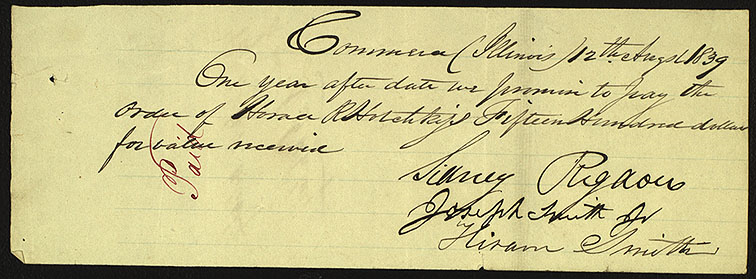 Commerce (Illinois) 12th Augst 1839
One year after date we promise to pay the
order of Horace R Hotchkiss Fifteen Hundred dollars
for value received
Paid
Sidney Rigdon
Joseph Smith Jr
Hiram Smith